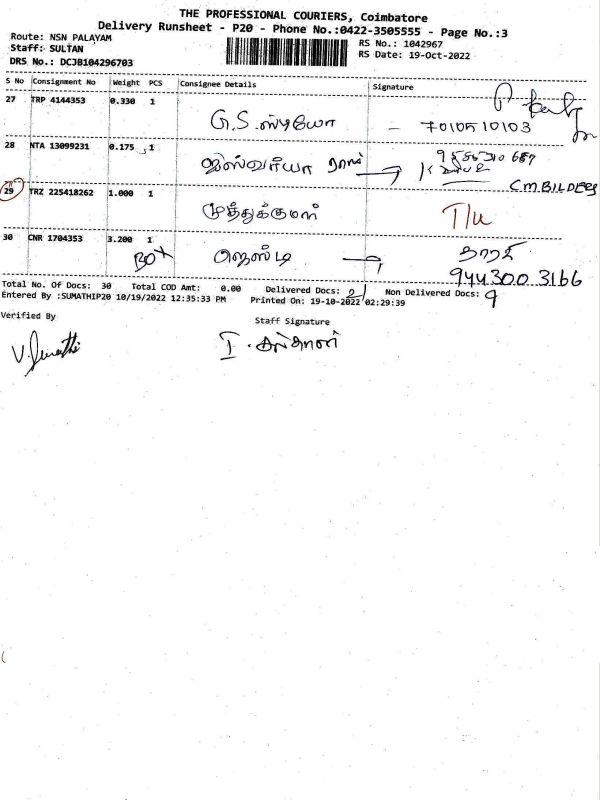 THE PROFESSIONAL COURIERS, Coimbatore
Delivery Runsheet - P20 - Phone No.:0422-3505555 - Page No.:3
Route: NSN PALAYAM
RS No.: 1042967
Staff: SULTAN
RS Date: 19-Oct-2022
DRS No.: DCJB104296703
S No Consignment No Weight PCS Consignee Details Signature
27 TRP 4144353 0.330 1
G.S. ஸ்டியோ - 7010510103
28 NTA 13099231 0.175 1
ஐஸ்வர்யா ராஜ்
C.M.BILDERS
29 TRZ 225418262 1.000 1
முத்துக்குமார் T/u
30 CNR 1704353 3.200 1
BOX ஜெஸ்டி
944300 3166
Total No. Of Docs: 30 Total COD Amt: 0.00 Delivered Docs: 21 Non Delivered Docs: 9
Entered By :SUMATHIP20 10/19/2022 12:35:33 PM Printed On: 19-10-2022 02:29:39
Verified By Staff Signature
V. Sumathi